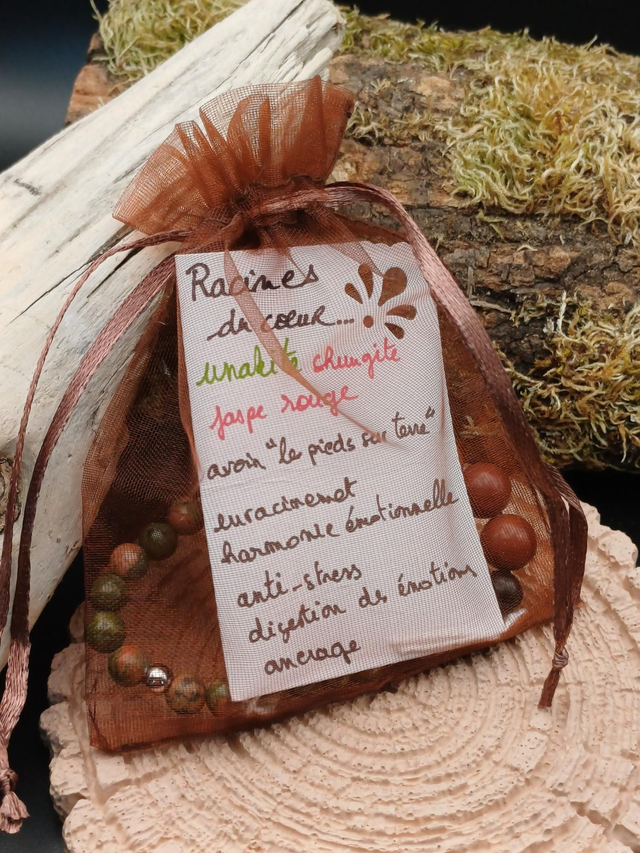 Racines
du coeur...
unakite chungite
jaspe rouge
avoir "le pieds sur terre"
enracinemet
harmonie émotionnelle
anti-stress
digestion des émotions
ancrage